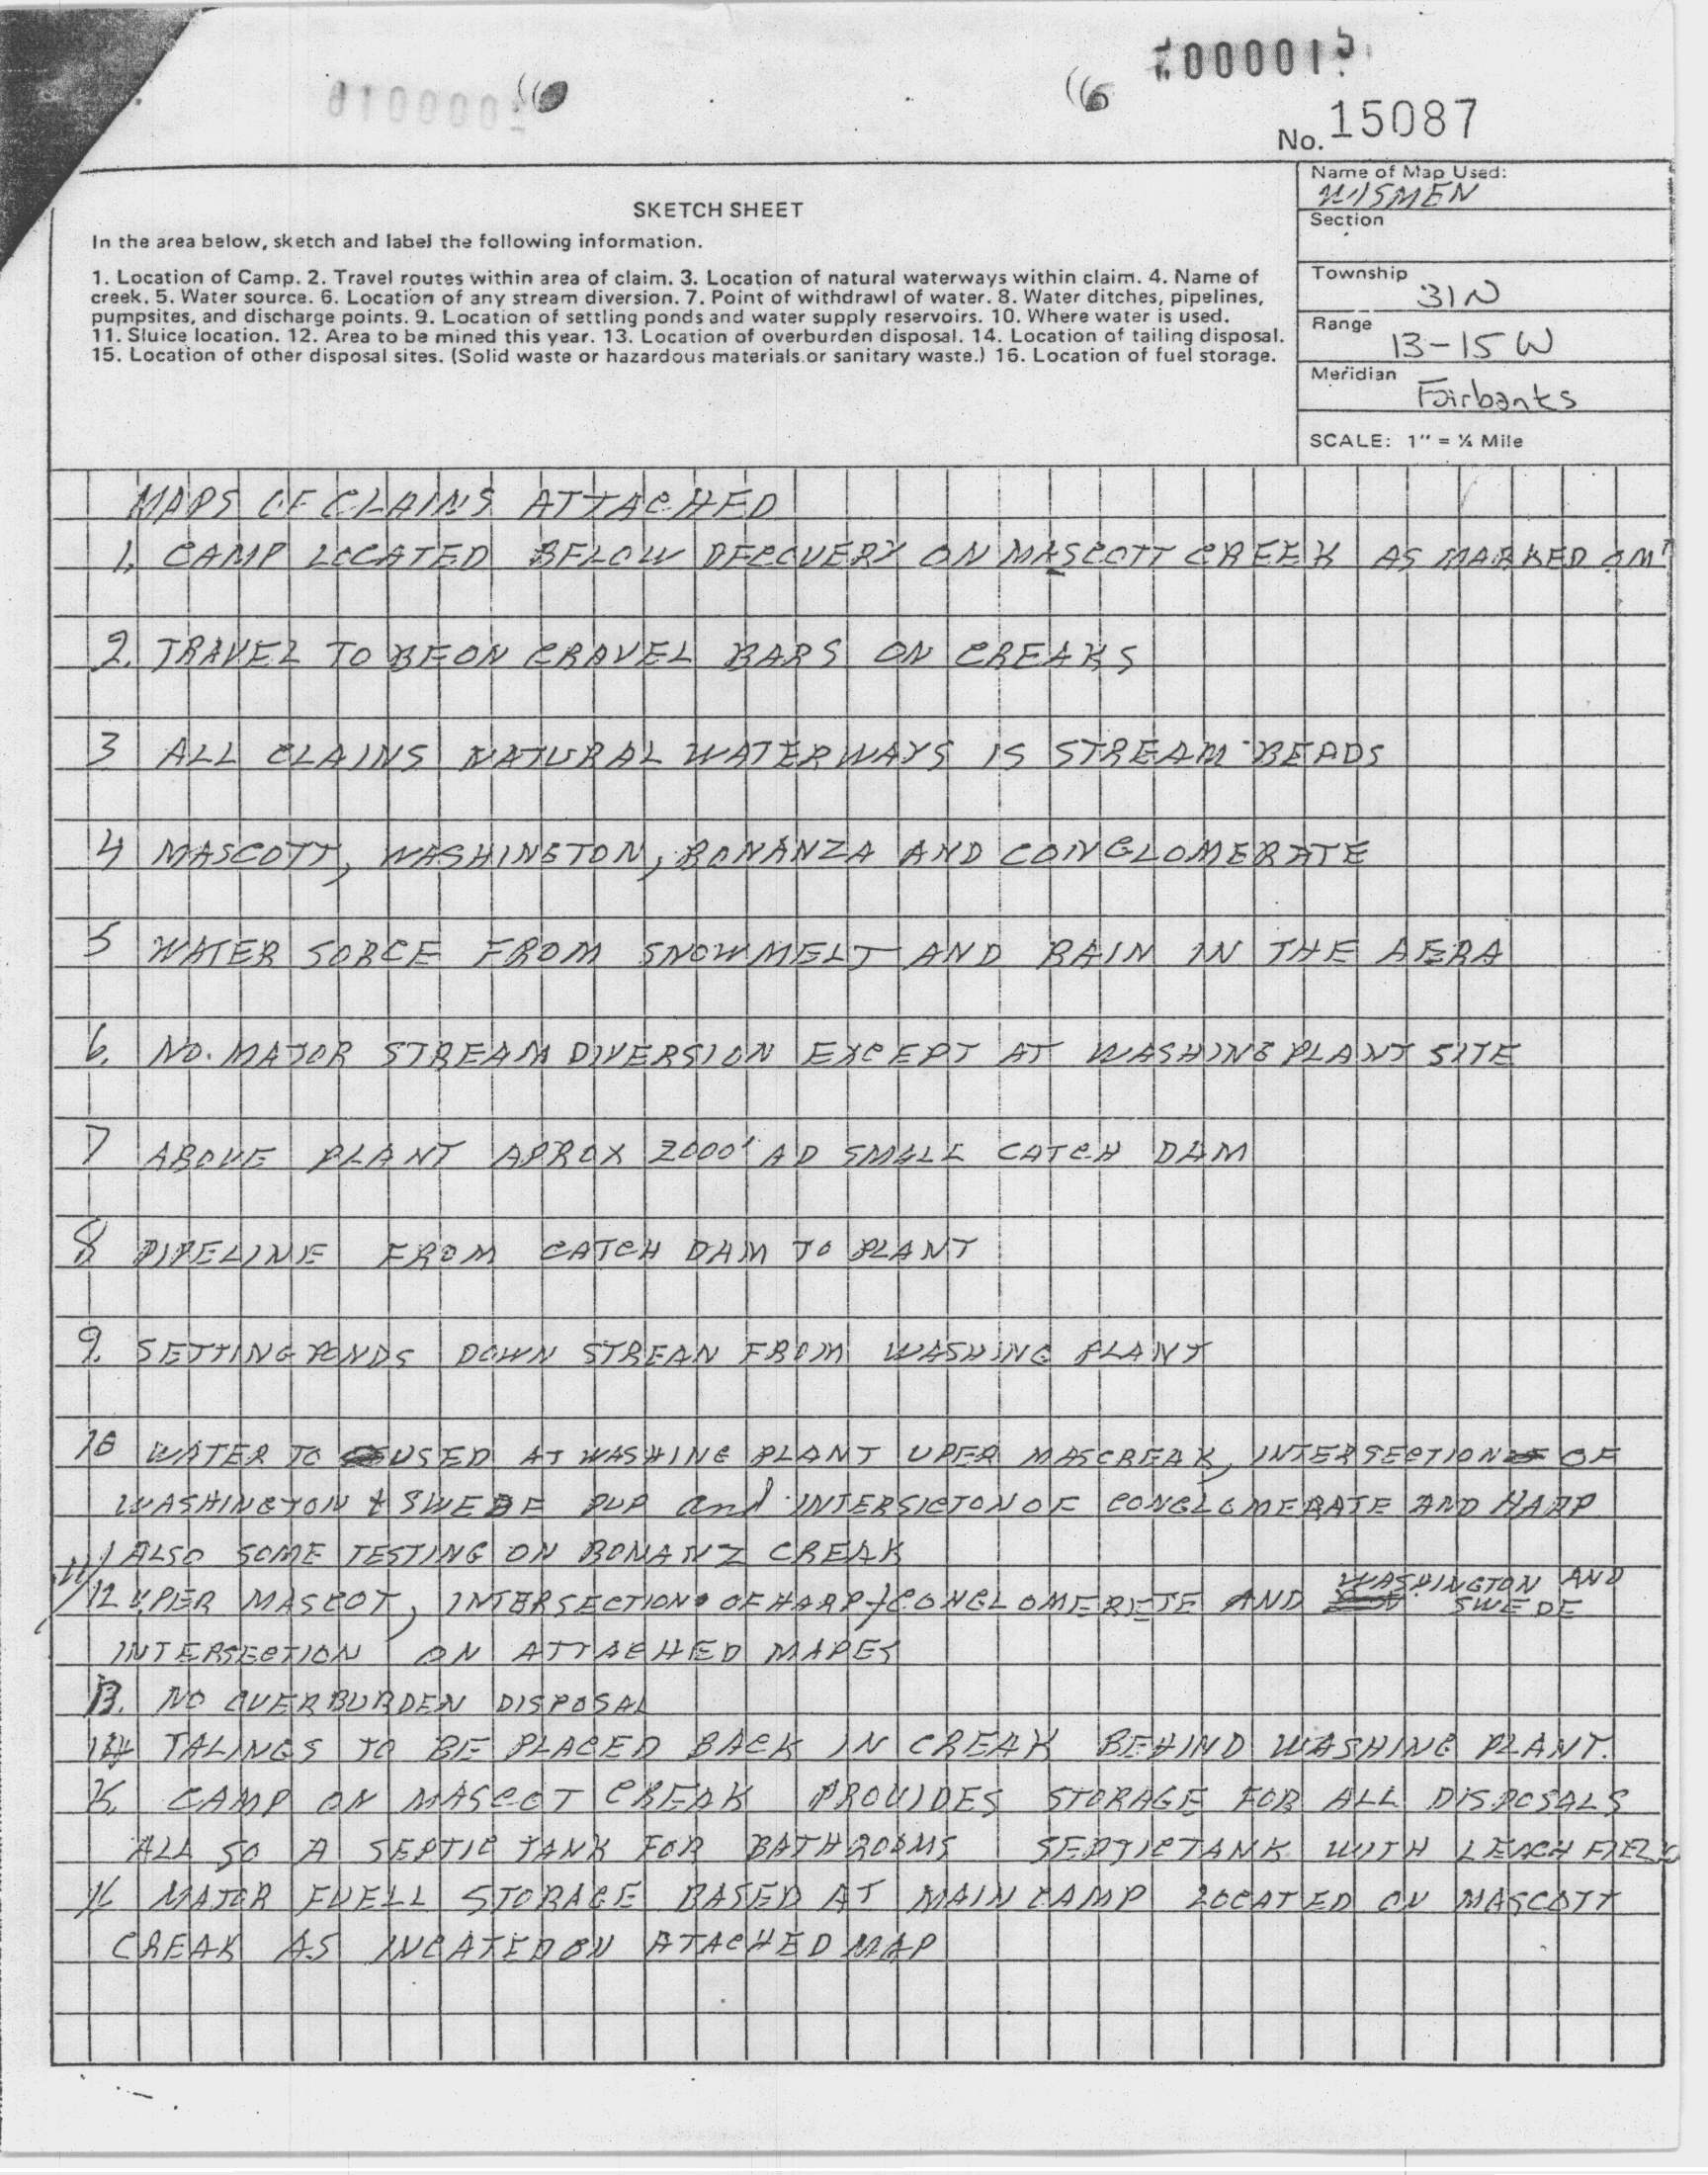 000001
No. 15087
Name of Map Used:
WISMEN
Section
Township
31N
Range
13-15 W
Meridian
Fairbanks
SCALE: 1" = ¼ Mile
SKETCH SHEET
In the area below, sketch and label the following information.
1. Location of Camp. 2. Travel routes within area of claim. 3. Location of natural waterways within claim. 4. Name of
creek. 5. Water source. 6. Location of any stream diversion. 7. Point of withdrawl of water. 8. Water ditches, pipelines,
pumpsites, and discharge points. 9. Location of settling ponds and water supply reservoirs. 10. Where water is used.
11. Sluice location. 12. Area to be mined this year. 13. Location of overburden disposal. 14. Location of tailing disposal.
15. Location of other disposal sites. (Solid waste or hazardous materials.or sanitary waste.) 16. Location of fuel storage.
MAPS OF CLAINS ATTACHED
1. CAMP LOCATED BELOW DECOVERY ON MASCOTT CREEK AS MARKED ON
2. TRAVEL TO BE ON GRAVEL BARS ON CREAKS
3 ALL CLAINS NATURAL WATERWAYS IS STREAM BEADS
4 MASCOTT, WASHINGTON, BONANZA AND CONGLOMERATE
5 WATER SORCE FROM SNOWMELT AND RAIN IN THE AERA
6. NO. MAJOR STREAM DIVERSION EXCEPT AT WASHING PLANT SITE
7 ABOVE PLANT APROX 2000' AD SMALL CATCH DAM
8 PIPELINE FROM CATCH DAM TO PLANT
9. SETTING PONDS DOWN STREAN FROM WASHING PLANT
10 WATER TO USED AT WASHING PLANT UPER MASCREAK, INTERSECTION OF
WASHINGTON & SWEDE PUP and INTERSICTON OF CONGLOMERATE AND HARP
ALSO SOME TESTING ON BONANZ CREAK
11/12 UPER MASCOT, INTERSECTION OF HARP & CONGLOMERETE AND WASHINGTON AND SWEDE
INTERSECTION ON ATTACHED MAPES
13. NO OVERBURDEN DISPOSAL
14 TALINGS TO BE PLACED BACK IN CREAK BEHIND WASHING PLANT.
15. CAMP ON MASCOT CREAK PROVIDES STORAGE FOR ALL DISPOSALS
ALL SO A SEPTIC TANK FOR BATHROOMS SEPTIC TANK WITH LEACH FIELD
16 MAJOR FUELL STORAGE BASED AT MAIN CAMP LOCATED ON MASCOTT
CREAK AS INCATED ON ATACHED MAP